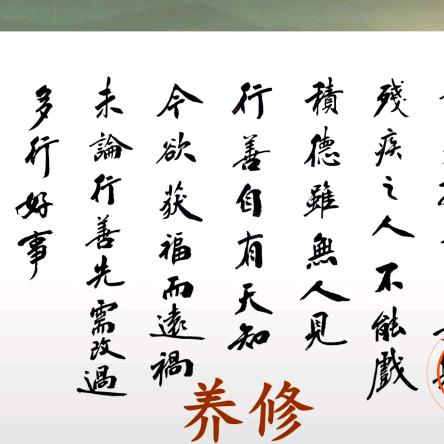 殘疾之人不能戲
積德雖無人見
行善自有天知
今欲获福而遠禍
未論行善先需改過
多行好事
修养